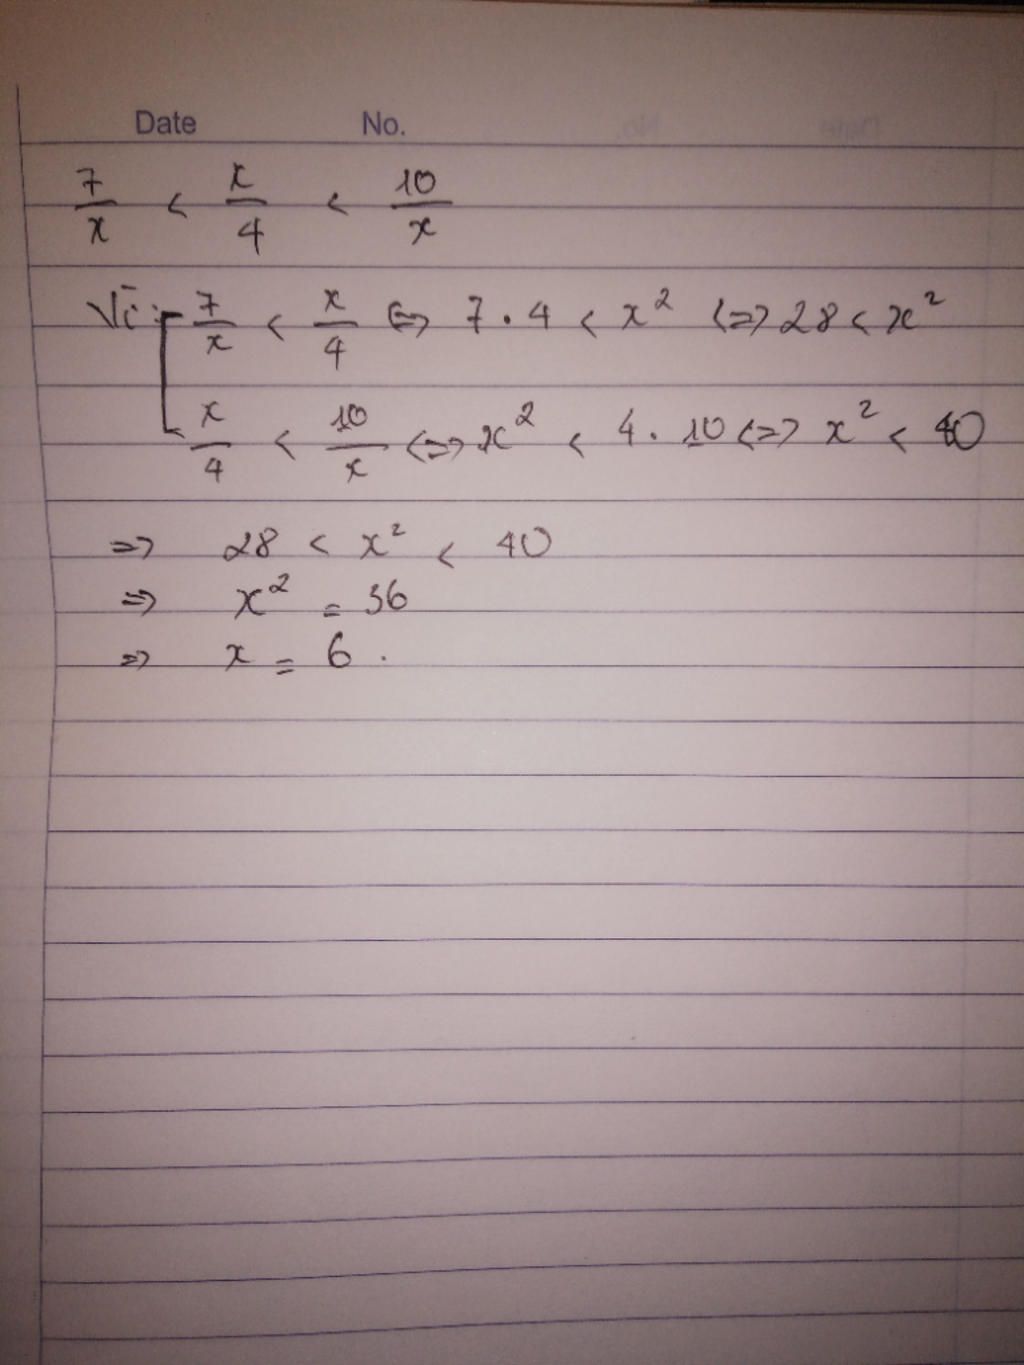 Date No.
7/x < x/4 < 10/x
Vì: 7/x < x/4 <=> 7 . 4 < x² <=> 28 < x²
x/4 < 10/x <=> x² < 4 . 10 <=> x² < 40
=> 28 < x² < 40
=> x² = 36
=> x = 6 .